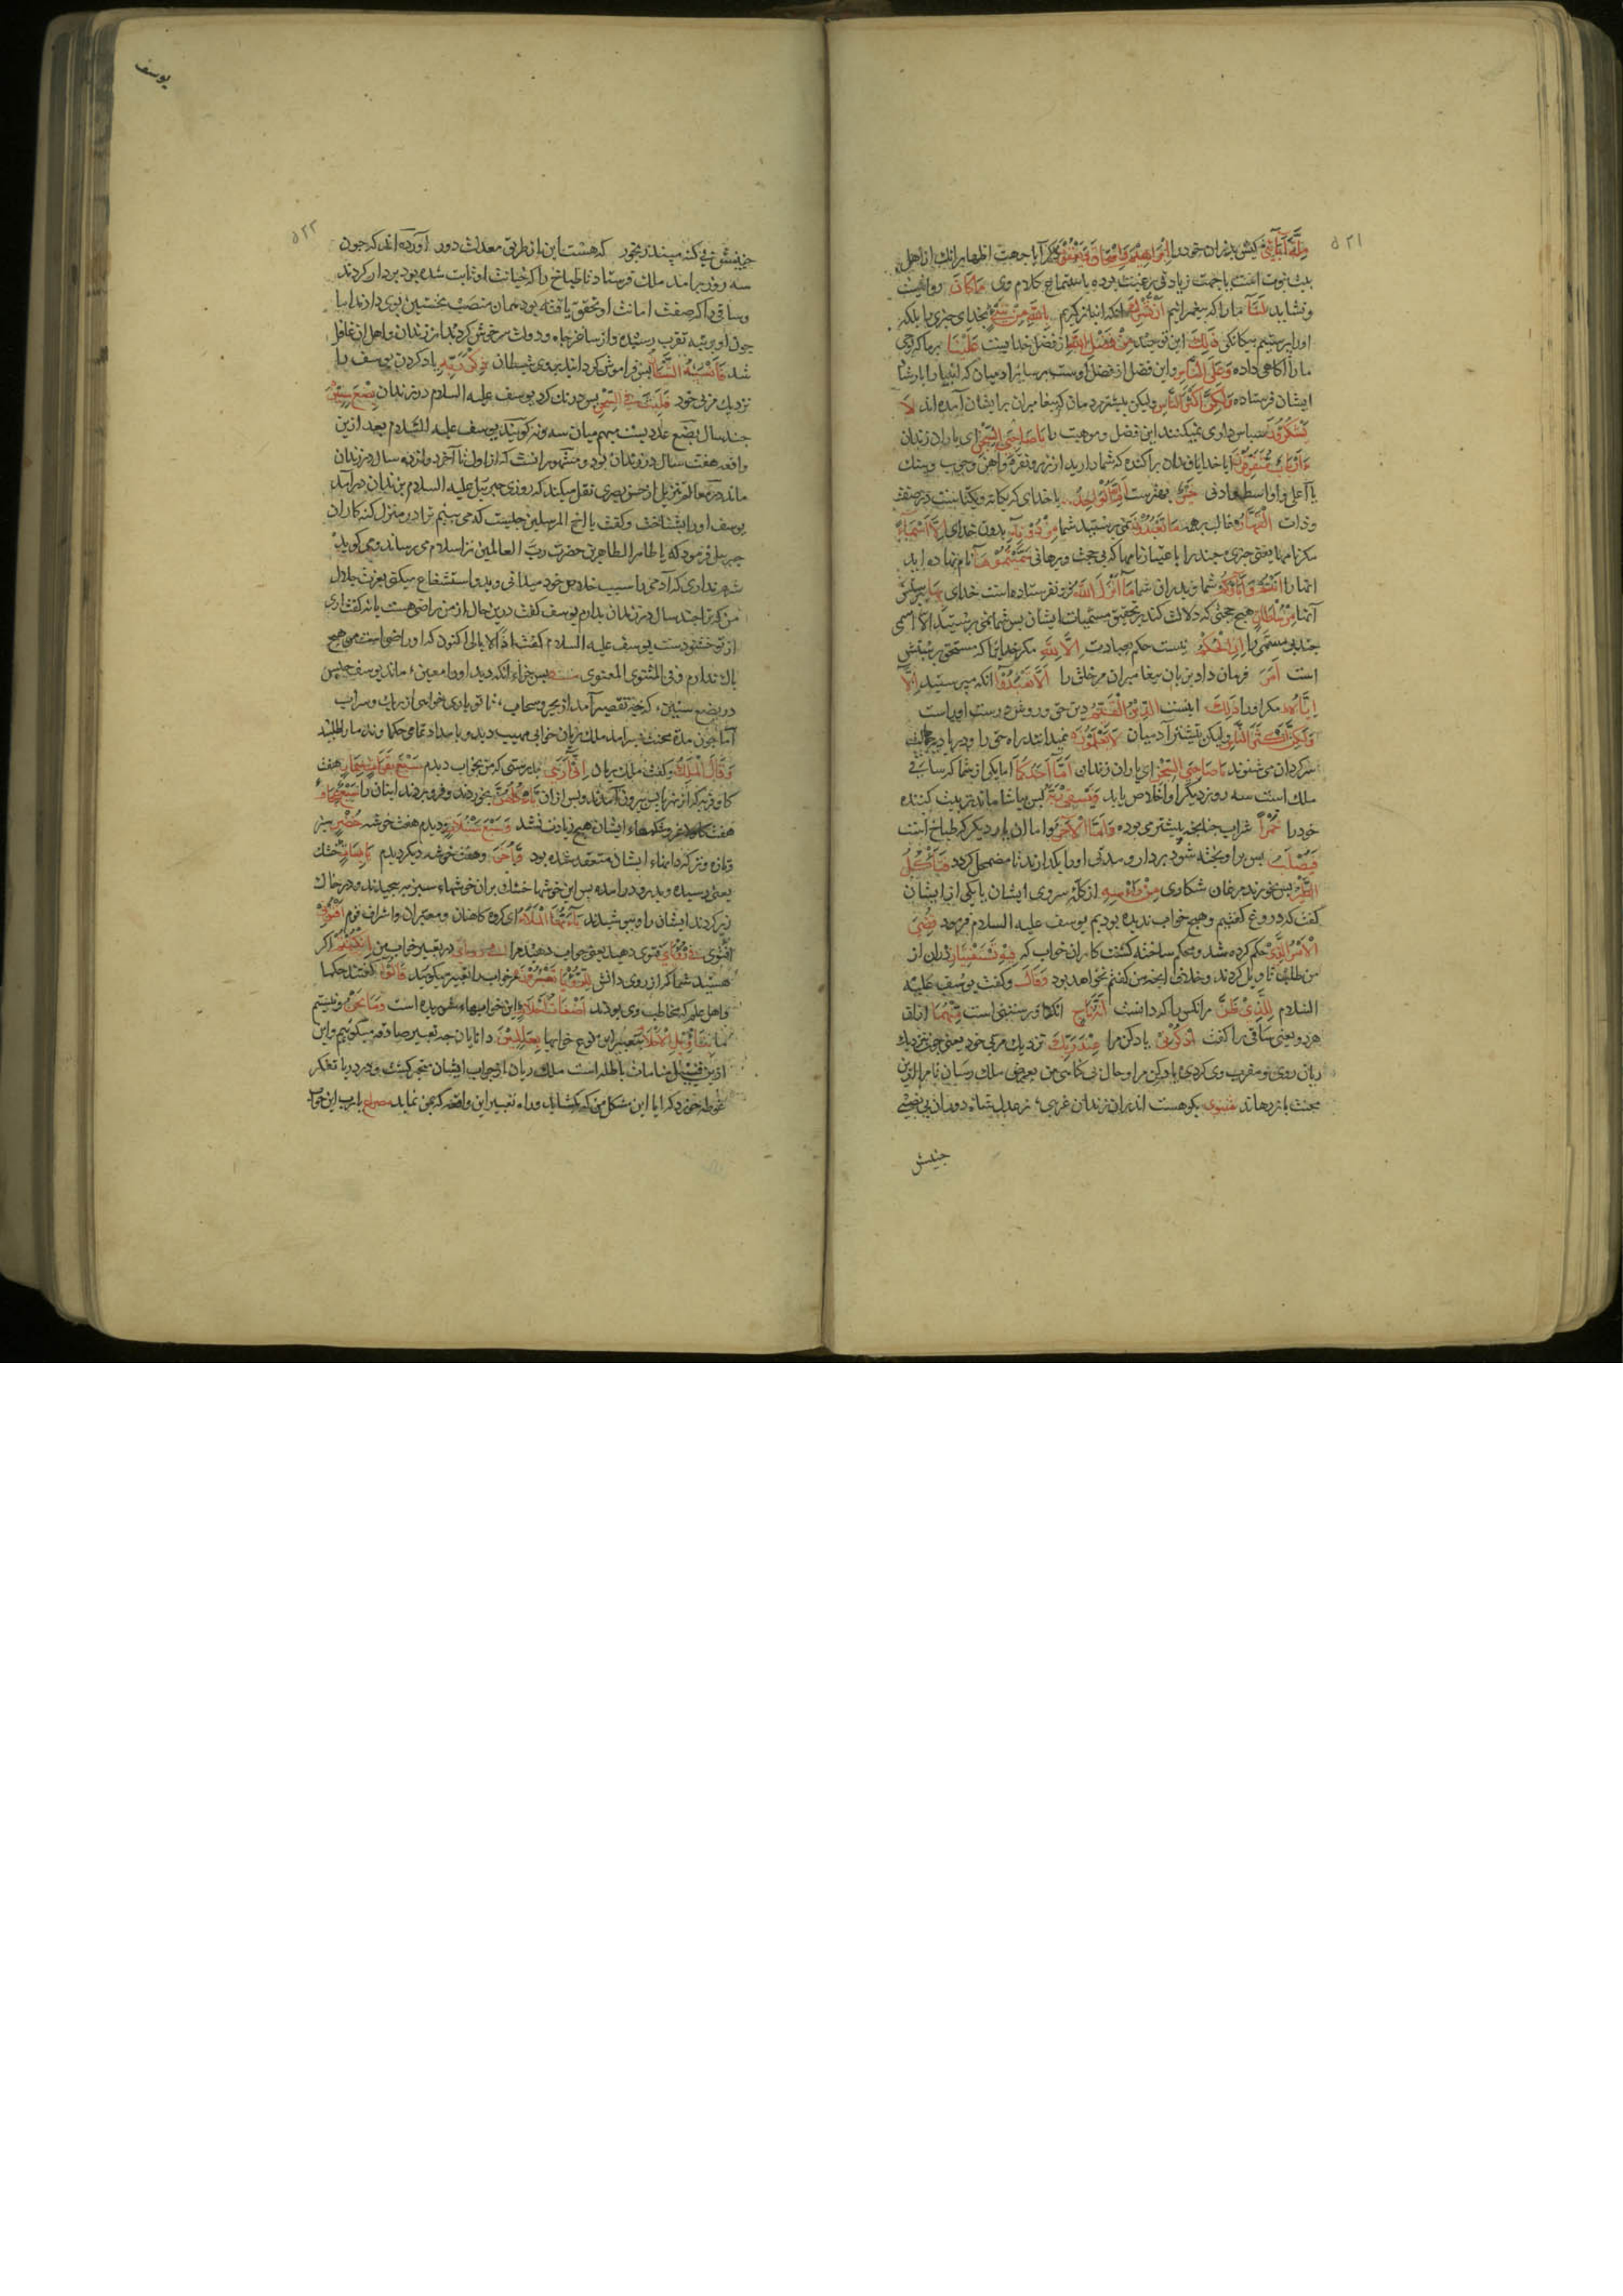 ۵۲۱
مِلَّةَ آبَآئِیْ کیش پدران خود را اِبْرَاهِیْمَ وَاِسْحَاقَ وَیَعْقُوْبَ ذکر آبا جهت اظهار انک از اهل
بیت نبوت است یا جهت زیادتی رغبت بوده باستماع کلام وی مَاکَانَ روانیست
و نشاید لَنَآ ما را که پیغمبرانیم اَنْ نُشْرِكَ انکه انباز گیریم بِاللهِ مِنْ شَیْءٍ بخدای چیزی را بلکه
اورا پرستیم بیکانکی ذٰلِكَ این توحید مِنْ فَضْلِ اللهِ از فضل خداییست عَلَیْنَا بر ما که وحی
ما را اکاهی داده وَعَلَی النَّاسِ و این فضل از فضل اوست بر سائر ادمیان که انبیا را بارشاد
ایشان فرستاده وَلٰکِنَّ اَکْثَرَ النَّاسِ ولیکن بیشتر مردمان که پیغامبران برایشان آمده اند لَا
یَشْکُرُوْنَ سپاس داری نمیکنند این فضل و موهبت را یَا صَاحِبَیِ السِّجْنِ ای یاران زندان
ءَاَرْبَابٌ مُتَفَرِّقُوْنَ ایا خدایان پراکنده که شما دارید از زر و نقره و اهن و چوب و سنک
یا اعلی و اواسط و ادنی خَیْرٌ بهترست اَمِ اللهُ الْوَاحِدُ یا خدای که یکانه و یکتاست در صفت
و ذات الْقَهَّارُ غالب بر همه مَا تَعْبُدُوْنَ نمی پرستید شما مِنْ دُوْنِهٖ بدون خدای اِلَّا اَسْمَآءً
مکر نامها یعنی چیزی چند را باعتبار نامها که بی حجت و برهانی سَمَّیْتُمُوْهَا نام نهاده اید
انها را اَنْتُمْ وَآبَآؤُکُمْ شما و پدران شما مَا اَنْزَلَ اللهُ فرو نفرستاده است خدای بِهَا پرستش
آنها مِنْ سُلْطَانٍ هیچ حجتی که دلالت کند بر تحقیق مسمیات ایشان پس شما نمی پرستید الا اسمی
چند بی مسمی را اِنِ الْحُکْمُ نیست حکم بعبادت اِلَّا لِلهِ مکر خدایرا که مستحق پرستش
است اَمَرَ فرمان داد بزبان پیغامبران مر خلق را اَلَّا تَعْبُدُوْآ انکه مپرستید اِلَّا
اِیَّاهُ مکر اورا ذٰلِكَ اینست الدِّیْنُ الْقَیِّمُ دین حق و روش درست اوراست
وَلٰکِنَّ اَکْثَرَ النَّاسِ ولیکن بیشتر آدمیان لَا یَعْلَمُوْنَ نمیدانند راه حق را و در بادیه جهالت
سرکردان می شوند یَا صَاحِبَیِ السِّجْنِ ای یاران زندان اَمَّا اَحَدُکُمَا اما یکی از شما که ساقی
ملک است سه روز دیکر او خلاص یابد فَیَسْقِیْ رَبَّهٗ پس بیاشاماند تربیت کننده
خود را خَمْرًا شراب چنانچه پیشتر می بوده وَاَمَّا الْاٰخَرُ و اما ان یار دیکر که طباخ است
فَیُصْلَبُ پس براویخته شود بردار و مدتی اورا بکذارند تا مضمحل کردد فَتَاْکُلُ
الطَّیْرُ پس بخورند مرغان شکاری مِنْ رَاْسِهٖ از کلهٔ سر وی ایشان یا یکی از ایشان
کفت که دروغ کفتیم و هیچ خواب ندیده بودیم یوسف علیه السلام فرمود قُضِیَ
الْاَمْرُ الَّذِیْ حکم کرده شد و محکم ساخته کشت کار ان خواب که فِیْهِ تَسْتَفْتِیَانِ دران از
من طلب تاویل کردند و خلاف انچه من کفتم نخواهد بود وَقَالَ و کفت یوسف علیه
السلام لِلَّذِیْ ظَنَّ مر انکس را که دانست اَنَّهٗ نَاجٍ انکه او رستنی است مِنْهُمَا از ان
هردو یعنی ساقی را کفت اُذْکُرْنِیْ یاد کن مرا عِنْدَ رَبِّكَ نزدیک مربی خود یعنی چون نزدیک
ریان روی و مقرب وی کردی یاد کن مرا و حال بی کناهی من بعرض ملک رسان تا مرا ازین
محنت باز رهاند مثنوی بکو هست اندران زندان غریبی ٭ ز عدل شاه دوران بی نصیبی
چنینش
یوسف
۵۲۲
چنینش بی کنه مپسند رنجور که هست این از طریق معدلت دور آورده اند که چون
سه روز برامد ملک فرستاد تا طباخ را که خیانت او ثابت شده بود بردار کردند
و ساقی را که صفت امانت او تحقق یافته بود بهمان منصب نخستین بوی دادند اما
چون او برتبه تقرب رسید و از ساغر جاه و دولت سرخوش کردید از زندان و اهل ان غافل
شد فَاَنْسٰهُ الشَّیْطَانُ پس فراموش کردانید بروی شیطان ذِکْرَ رَبِّهٖ یاد کردن یوسف را
نزدیک مربی خود فَلَبِثَ فِی السِّجْنِ پس درنک کرد یوسف علیه السلام در زندان بِضْعَ سِنِیْنَ
چند سال بضع عددیست مبهم میان سه و نه کویند یوسف علیه السلام بعد ازین
واقعه هفت سال در زندان بود و مشهور انست که از اول تا آخر دوازده سال در زندان
ماند در معالم تنزیل از حسن بصری نقل میکند که روزی جبرئیل علیه السلام بزندان درآمد
یوسف اورا بشناخت و کفت یا اخ المرسلین چیست که می بینم ترا در منزل کنه کاران
جبرئیل فرمود که یا طاهر الطاهرین حضرت رب العالمین ترا سلام میرساند و می کوید
شرم نداری که آدمی را سبب خلاص خود میدانی و بدو استشفاع میکنی بعزت جلال
من که ترا چند سال در زندان بدارم یوسف کفت درین حال از من راضی هست یا نه کفت اری
از تو خشنودست یوسف علیه السلام کفت اذًا لا ابالی اکنون که او راضی است مرا هیچ
باک ندارم فی المثنوی المعنوی پس جزاء انکه دید اورا معین ٭ ماند یوسف حبس
در بضع سنین ٭ که چه تقصیر آمد از بحر و سحاب ٭ تا تو یاری خواهی از ریک و سراب
آما چون مدة محنت بسر امد ملک ریان خوابی مهیب دید و بامداد تمامی حکما و ندما را طلبید
وَقَالَ الْمَلِكُ و کفت ملک ریان اِنِّیْ اَرٰی بدرستی که من بخواب دیدم سَبْعَ بَقَرَاتٍ سِمَانٍ هفت
کاو فربه که از نهر یابس بیرون آمدند و پس ازان یَاْکُلُهُنَّ بخوردند و فرو بردند ایشان را سَبْعٌ عِجَافٌ
هفت کاو لاغر و شکمهاء ایشان هیچ زیادت نشد وَسَبْعَ سُنْبُلَاتٍ و دیدم هفت خوشه خُضْرٍ سبز
و تازه و تر که دانهاء ایشان منعقد شده بود وَاُخَرَ و هفت خوشه دیکر دیدم یَابِسَاتٍ خشک
یعنی رسیده و بدرو درامده پس این خوشها خشک بران خوشهاء سبز برپیچیدند و در خاک
زیر کردند ایشان را و بپوشیدند یَآاَیُّهَا الْمَلَاُ ای کروه کاهنان و معبران و اشراف قوم اَفْتُوْنِیْ
فِیْ رُءْیَایَ فتوی دهید یعنی جواب دهید مرا در تعبیر خواب من اِنْ کُنْتُمْ اکر
هستید شما که از روی دانش لِلرُّءْیَا تَعْبُرُوْنَ مر خواب را تعبیر میکویید قَالُوْا کفتند حکما
و اهل علم که مخاطب وی بودند اَضْغَاثُ اَحْلَامٍ این خوابهاء شوریده است وَمَا نَحْنُ و نیستیم
ما بِتَاْوِیْلِ الْاَحْلَامِ بتعبیر این نوع خوابها بِعٰلِمِیْنَ دانایان چه تعبیر صادقه میکوییم و این
ازین قبیل منامات باطله است ملک ریان از جواب ایشان متحیر کشت و در دریا تفکر
غوطه خورد که ایا این مشکل من که کشاید و راه تعبیر این واقعه که بمن نماید مصراع یا رب این خواب